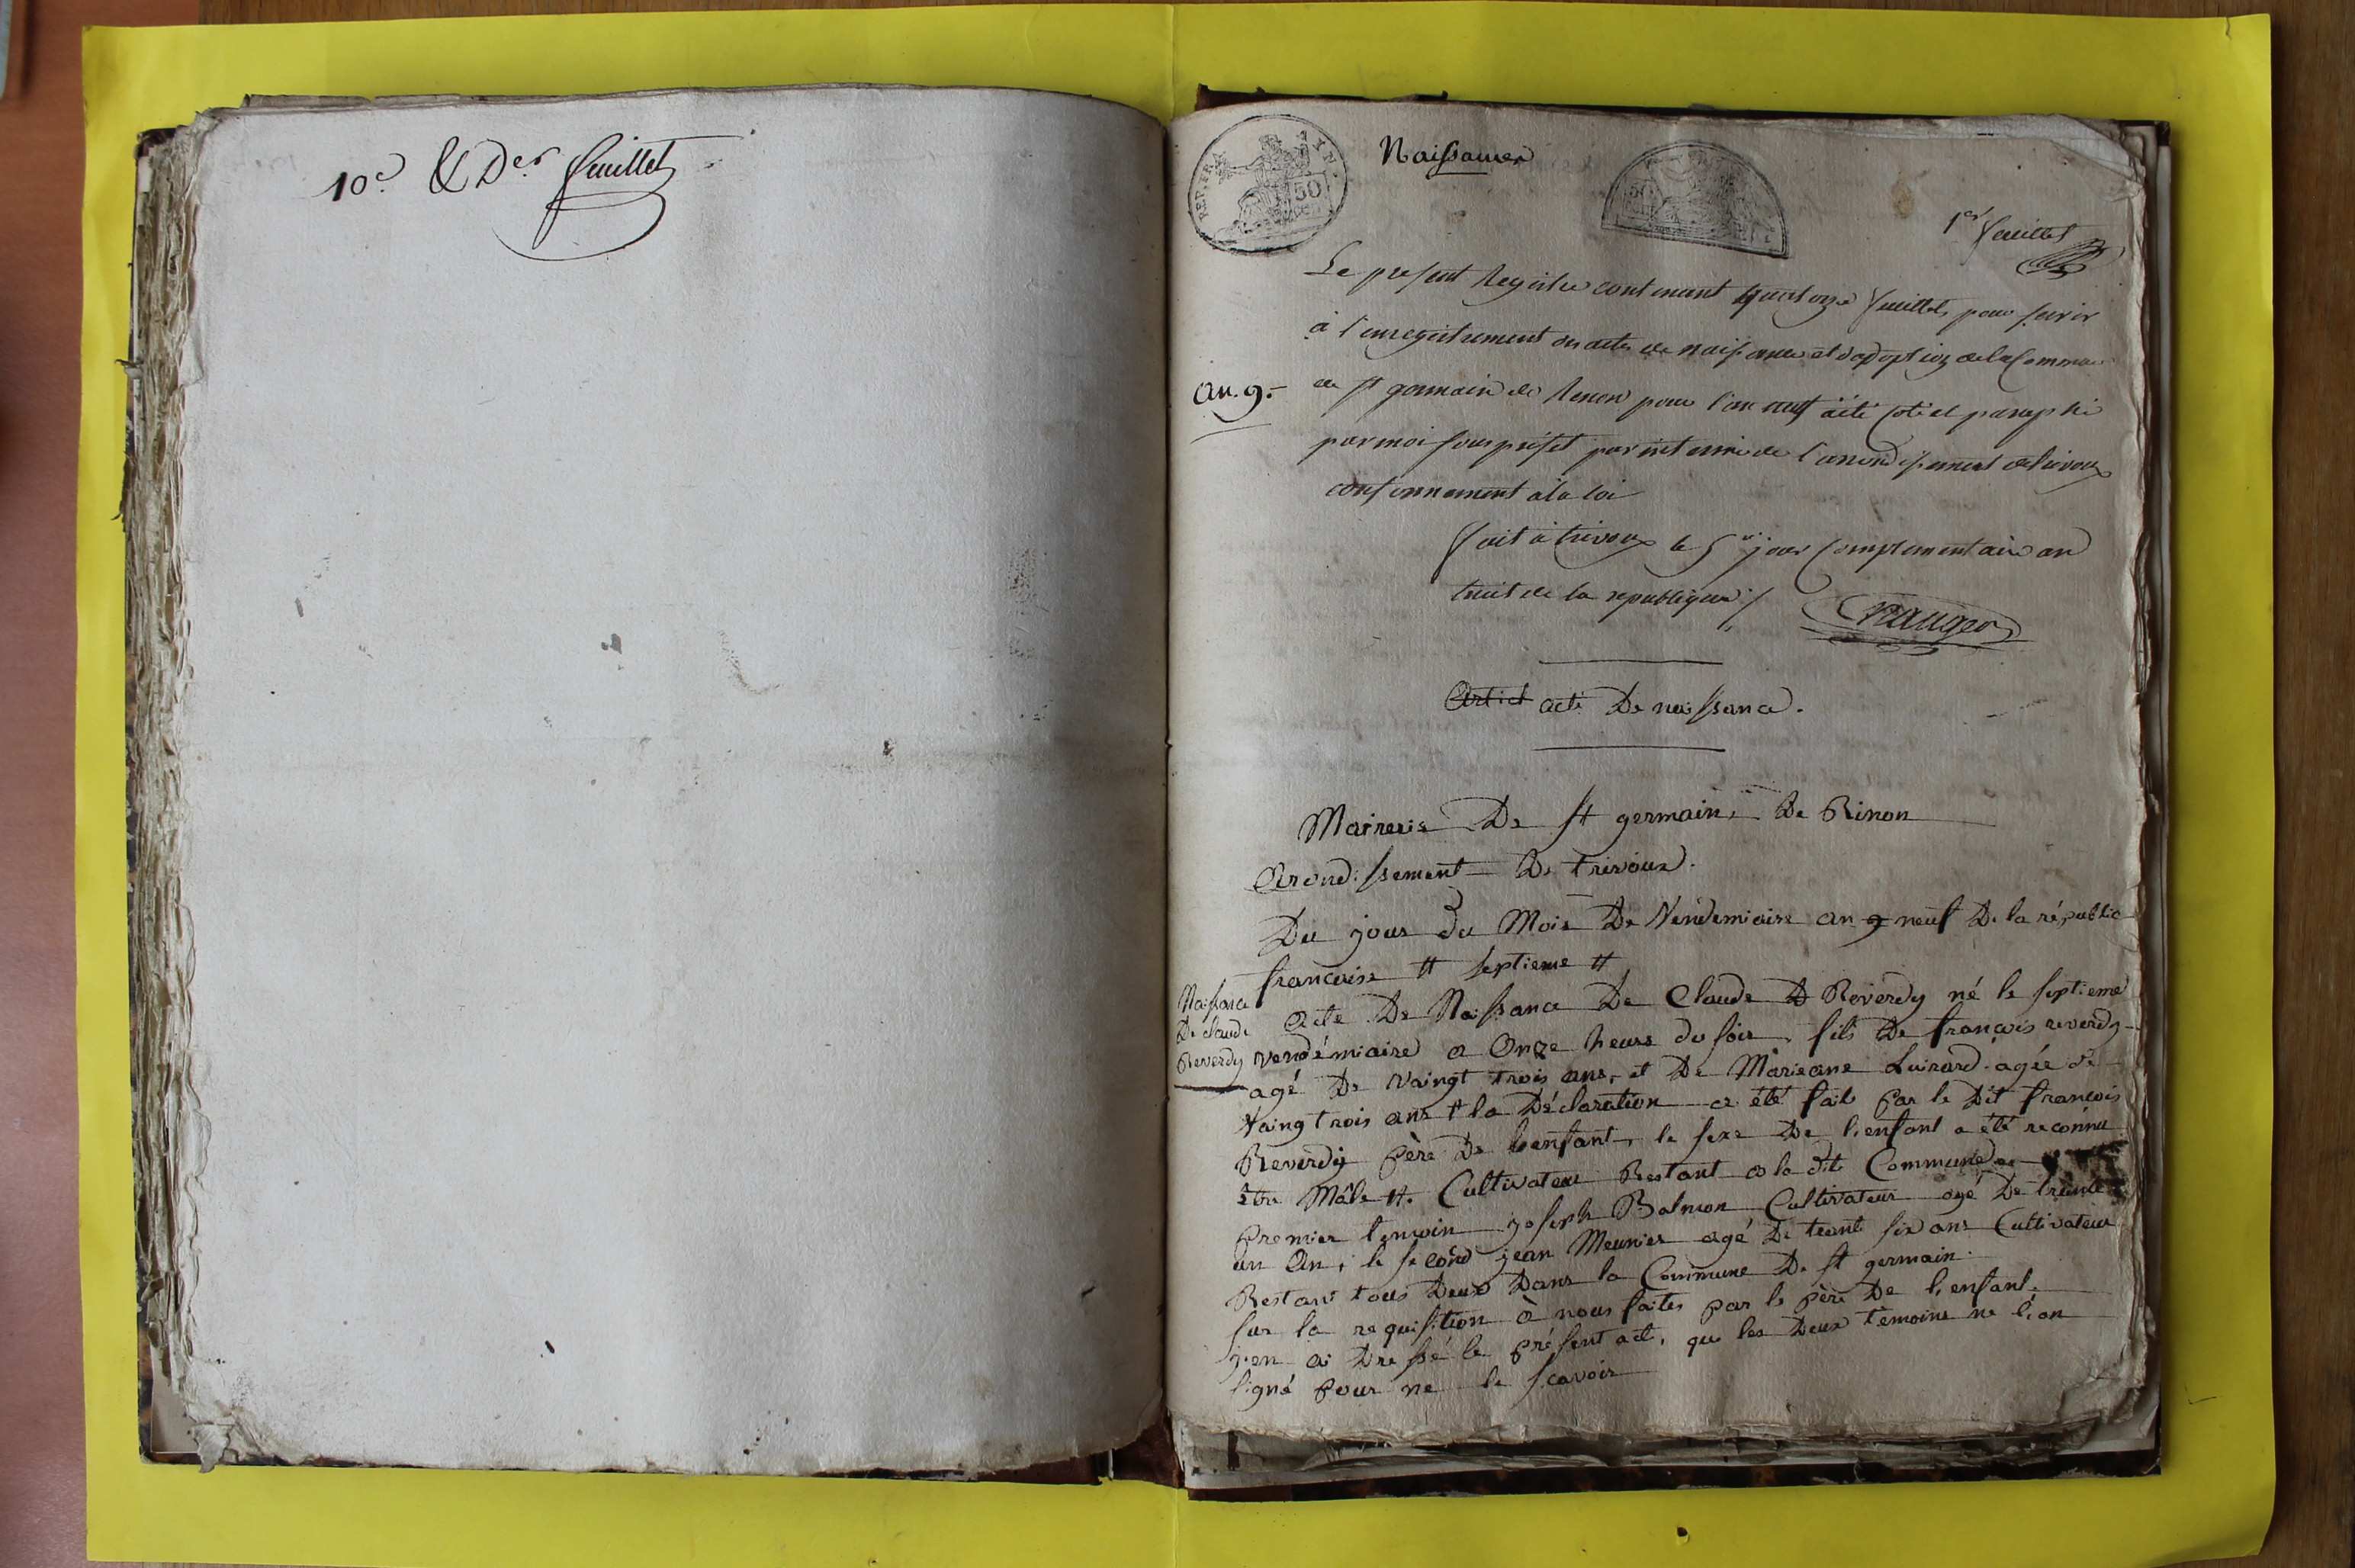 10e. & Der feuillet
REP. FRA
50
Naissances
1er feuillet
Le present Registre contenant quatorze feuillets pour servir
à l'enregistrement des actes de naissance et d'adoption de la Commune
an. 9.
de st germain de Renon pour l'an neuf a été coté et paraphé
par moi sous préfet par interim de l'arrondissement de trevoux
conformement à la loi
fait à trevoux le 5e jour complementaire an
huit de la republique ./.
Artict acte De naissance.
Maireris De st germain, De Rinon
Arondissement De trivoux.
Du jour du Mois De Vendemiaire an 9 neuf De la républic
francaise # septieme #
Naissance
De claude
Reverdy
Acte De Naissance De Claude D Reverdy né le septieme
vendémiaire a Onze heurs du soir, fils De francois reverdy
agé De vaingt trois ans, et De Marieane Luirard agée de
vaing trois ans # la Déclaration a été fait par le Dit francois
Reverdy père De lenfant, le sexe De l'enfant a été reconnu
être Mâle #. Cultivateur Restant a la dite Commune
premier temoin joseph Balmon Cultivateur agé De trente
un An, le second jean Meunier agé De trente six ans Cultivateur
Restant tous Deux Dans la Commune De st germain.
sur la requisition à nous faites par le père De l'enfant.
j'en ai Dressé le présent act, que les Deux témoins ne l'on
signé pour ne le scavoir